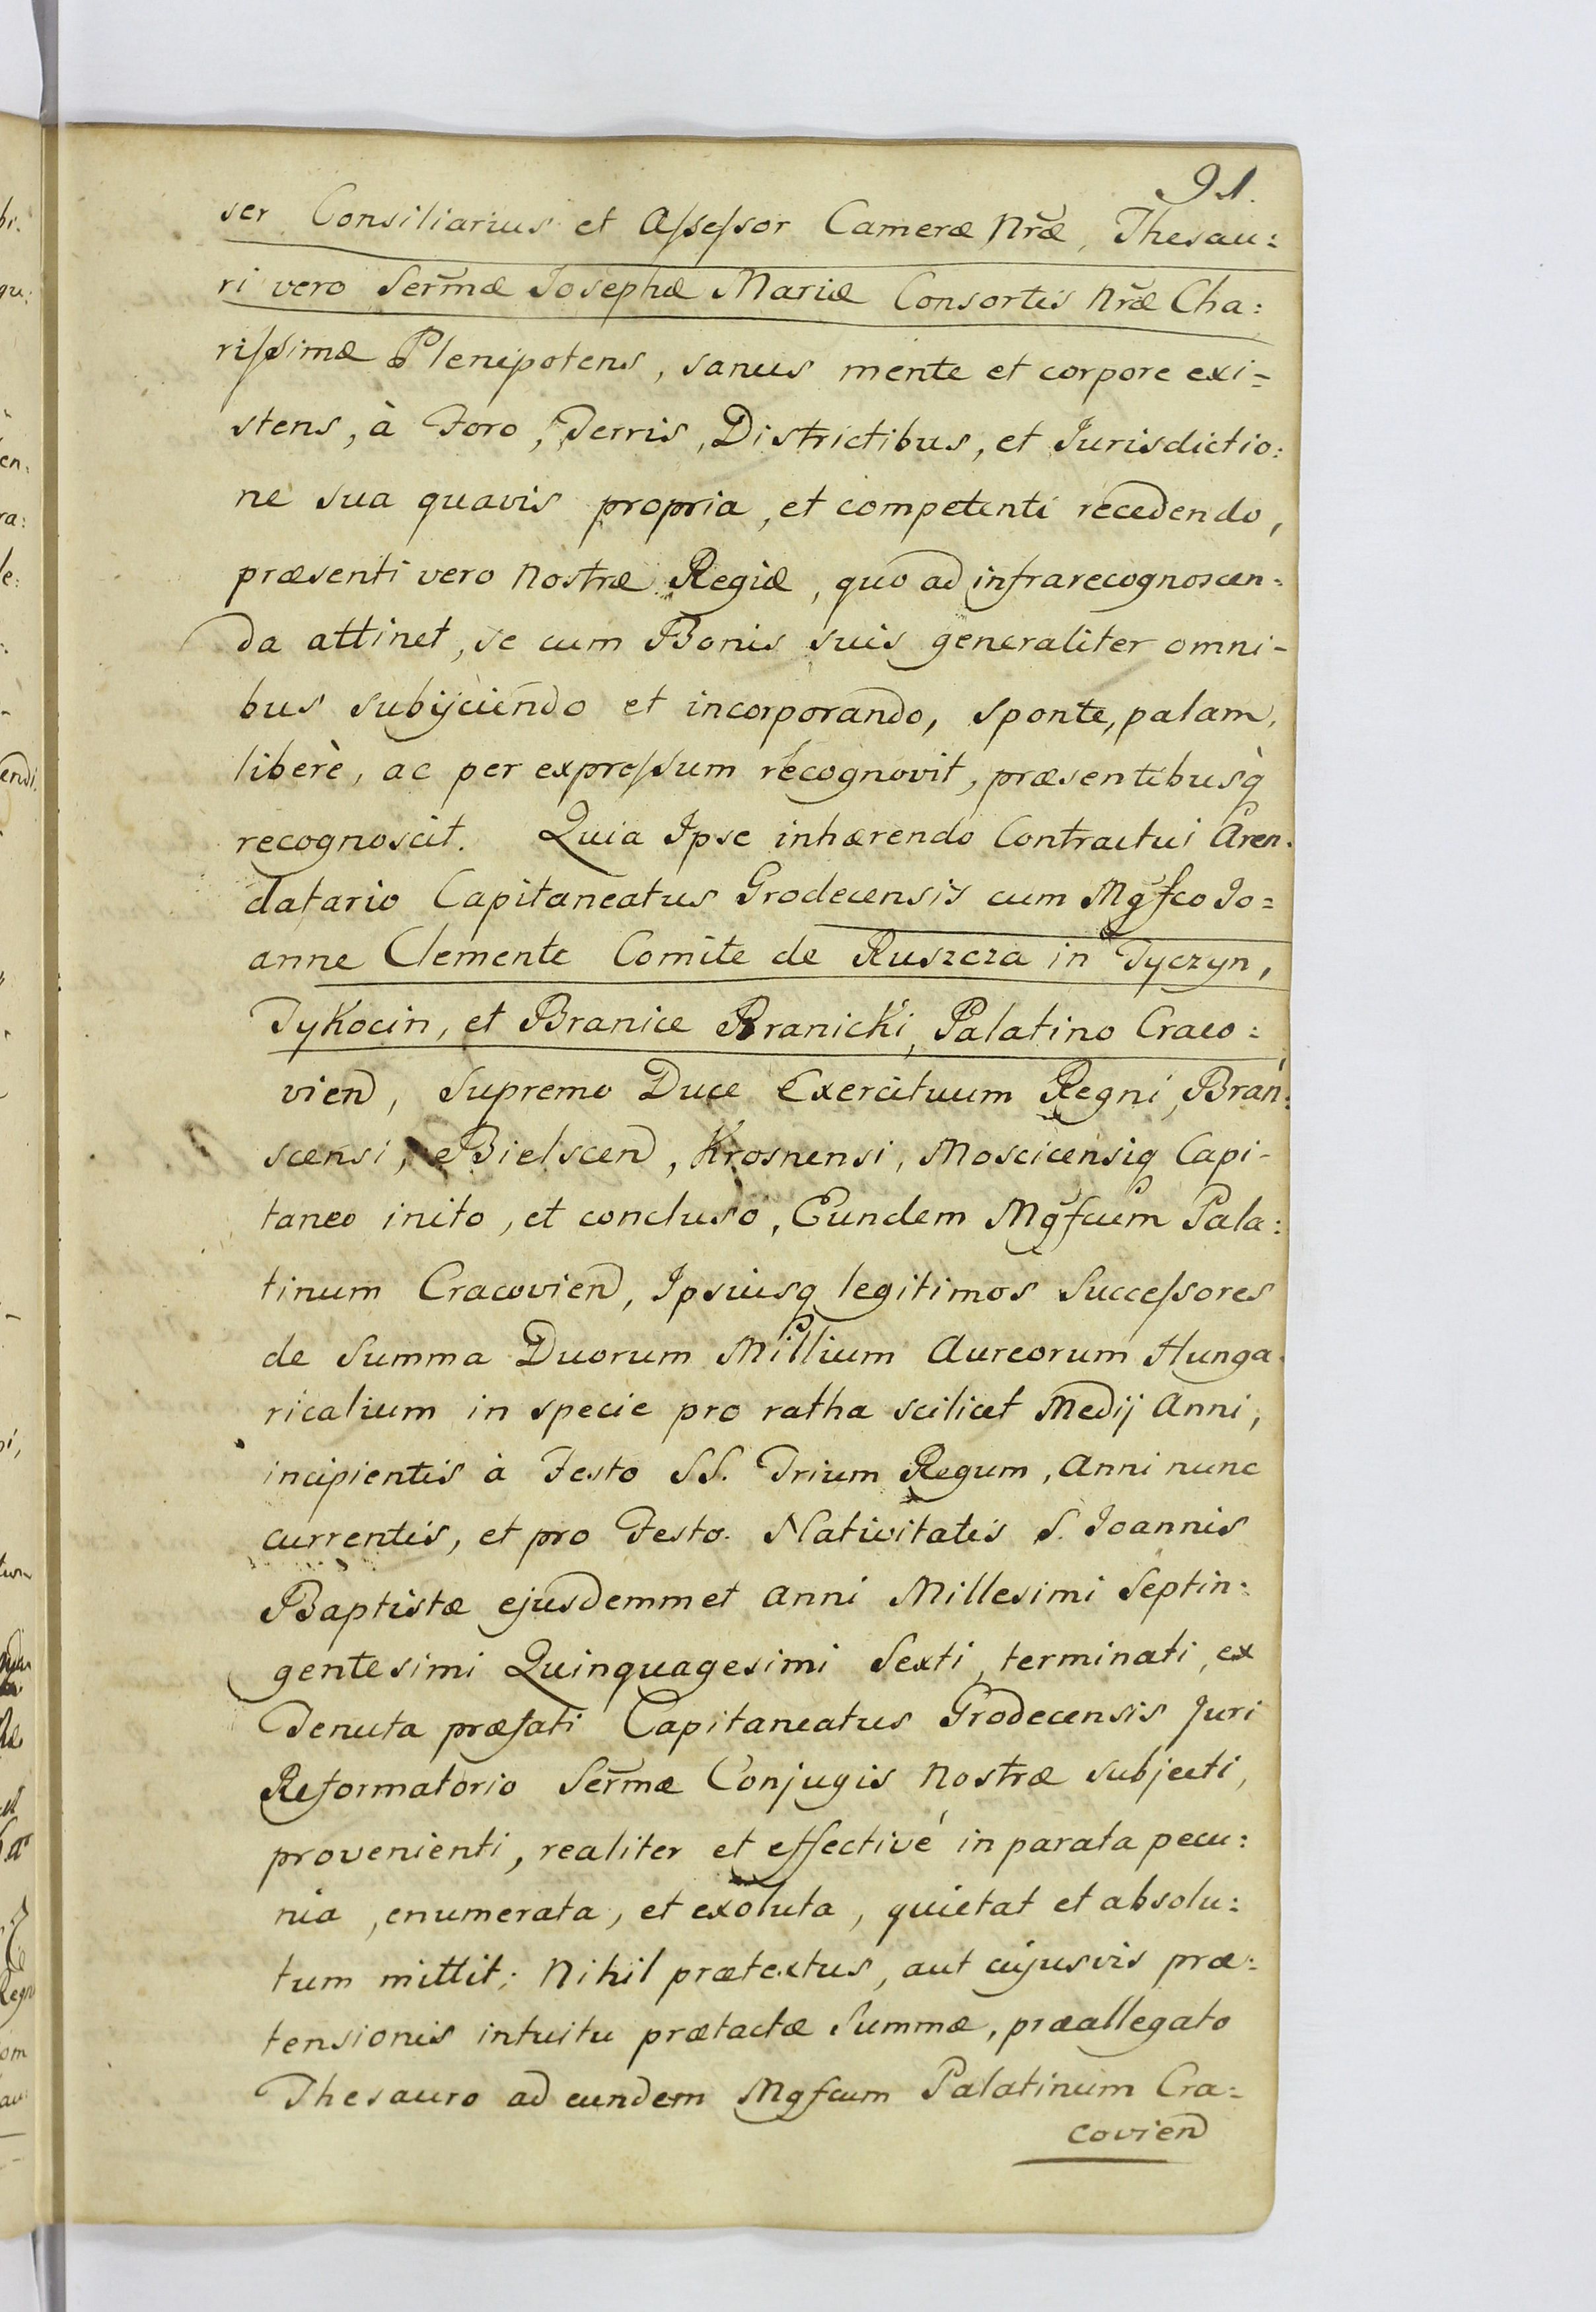 91.
ser Consiliarius et Aſseſsor Cameræ Nr̃æ, Thesau:
ri vero Serm̃æ Josephæ Mariæ Consortis Nr̃æ Cha:
riſsimæ Plenipotens, sanus mente et corpore exi=
stens, à Foro, Terris, Districtibus, et Jurisdictio:
ne sua quavis propria, et competenti recedendo,
præsenti vero Nostræ Regiæ, quo ad infrarecognoscen=
da attinet, se cum Bonis suis generaliter omni-
bus subijciendo et incorporando, sponte, palam,
liberè, ac per expreſsum recognovit, præsentibusq̀
recognoscit. Quia Ipse inhærendo Contractui Aren:
datario Capitaneatus Grodecensis cum Mg̃fco Jo=
anne Clemente Comite de Ruszcza in Tyczyn,
Tykocin, et Branice Branicki, Palatino Craco:
vien̄, Supremo Duce Exercituum Regni, Bran:
scensi, Bielscen̄, Krosnensi, Moscicensiq Capi-
taneo inito, et concluso, Eundem Mg̃fcum Pala:
tinum Cracovien̄, Ipsiusq legitimos Succeſsores
de Summa Duorum Millium Aureorum Hunga:
ricalium in specie pro ratha scilicet Medij Anni,
incipientis à Festo SS. Trium Regum, Anni nunc
currentis, et pro Festo Nativitatis S. Joannis
Baptistæ ejusdemmet Anni Millesimi Septin:
gentesimi Quinquagesimi Sexti, terminati, ex
Tenuta præfati Capitaneatus Grodecensis Juri
Reformatorio Serm̃æ Conjugis Nostræ subjecti,
provenienti, realiter et effectivé in parata pecu:
nia, enumerata, et exoluta, quietat et absolu:
tum mittit; Nihil prætextus, aut cujusvis præ:
tensionis intuitu prætactæ Summæ, præallegato
Thesauro ad eundem Mgfcum Palatinum Cra=
covien̄